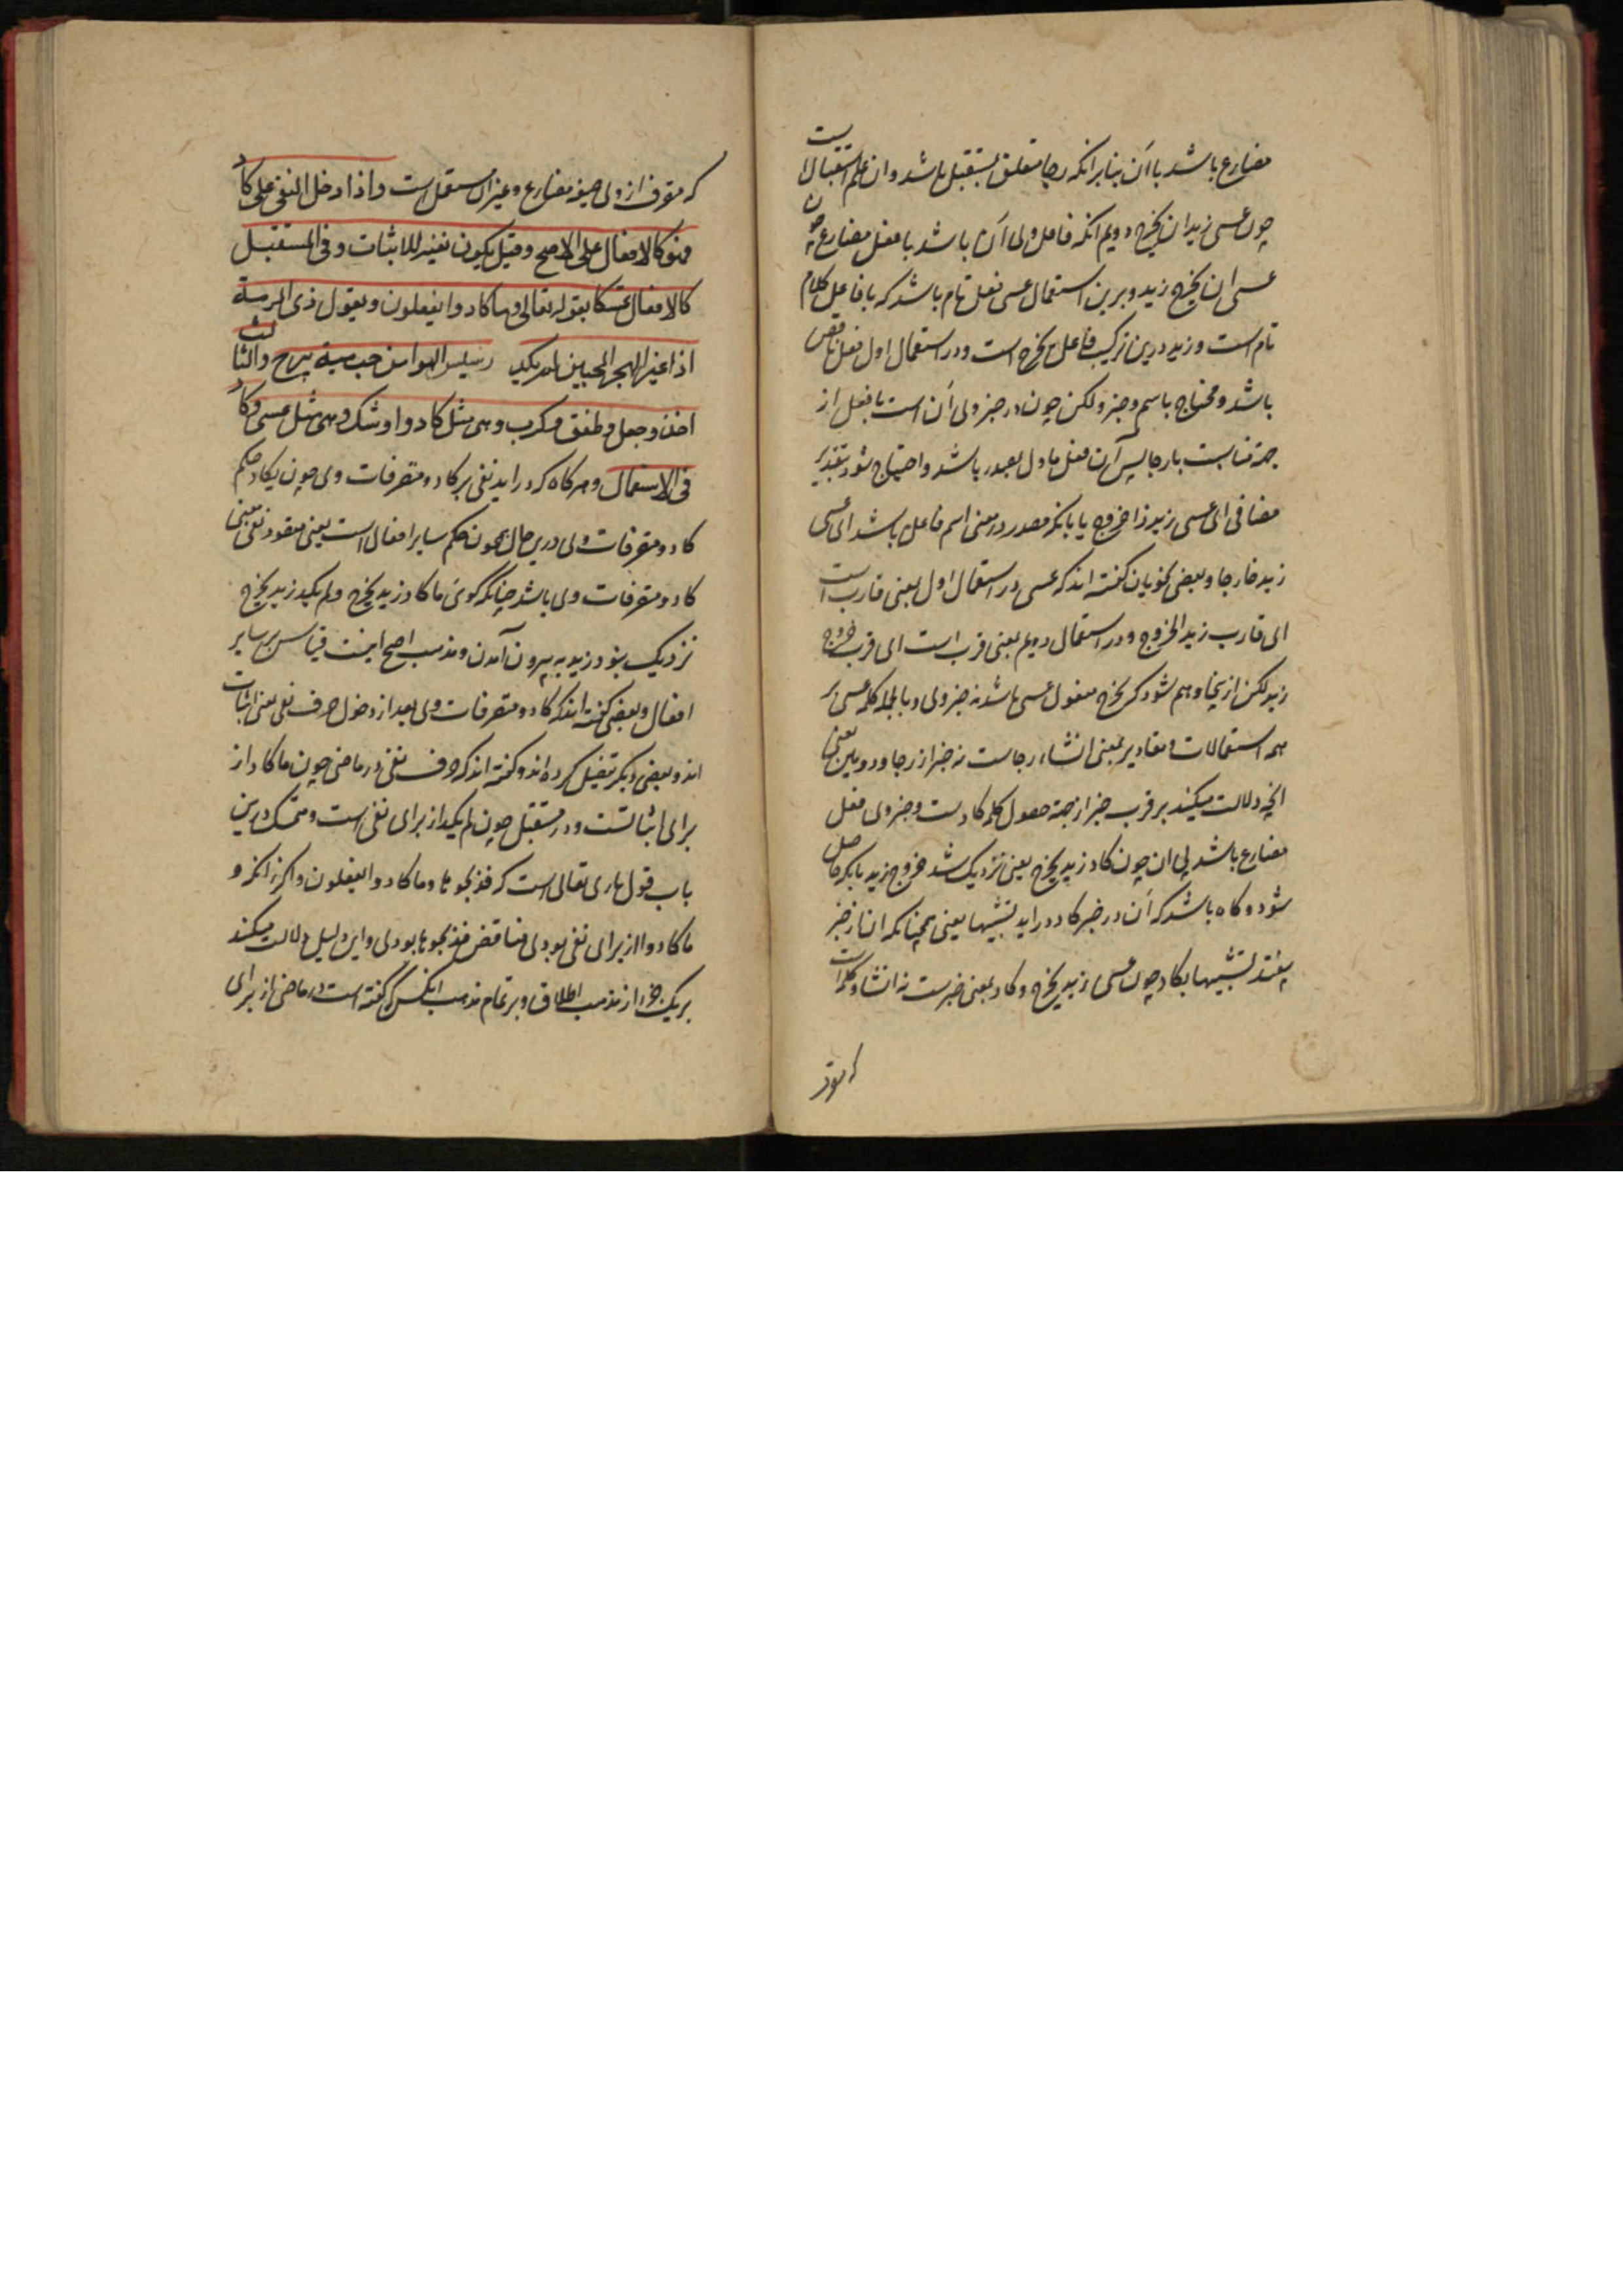 مضارع باشد با ان بنابر آنکه رجا متعلق بمستقبل باشد و ان علم استقبال است
چون عسی زید ان یخرج دویم آنکه فاعل وی ان باشد با فعل مضارع چون
عسی ان یخرج زید و برین استعمال عسی فعل تام باشد که با فاعل کلام
تام است و زید درین ترکیب فاعل یخرج است و در استعمال اول فعل ناقص
باشد و محتاج باسم و خبر ولکن چون در خبر وی ان است با فعل از
جهة مناسبت با رجا پس آن فعل ماول بمصدر باشد و احتیاج شود بتقدیر
مضافی ای عسی زید ذا خروج یا بانکه مصدر در معنی اسم فاعل باشد ای عسی
زید خارجا و بعضی نحویان گفته اند که عسی در استعمال اول بمعنی قارب است
ای قارب زید الخروج و در استعمال دویم بمعنی قرب است ای قرب خروج
زید لکن ازینجا وهم شود که یخرج مفعول عسی باشد نه خبر وی و بالجمله کلمه عسی بر
همه استعمالات و تقادیر بمعنی انشاء رجاست نه خبر از رجا و دویمین یعنی
انچه دلالت میکند بر قرب خبر از جهة حصول کلمه کادست و خبر وی فعل
مضارع باشد بی ان چون کاد زید یخرج یعنی نزدیک شد خروج زید بانکه حاصل
شود و کاه باشد که ان در خبر کاد دراید تشبیها بعسی همچنانکه ان از خبر
بیفتد تشبیها بکاد چون عسی زید یخرج و کاد بمعنی خبرست نه انشا و کلمه ایست
که متصر
که متصرف ازوی صیغه مضارع و غیر ان مستعمل است و اذا دخل النفی علی کاد
فهو کالافعال علی الاصح و قیل یکون نفیه للاثبات و فی المستقبل
کالافعال تمسکا بقوله تعالی وما کادوا یفعلون و بقول ذی الرمة
اذا غیر الهجر المحبین لم یکد رسیس الهوا من حب میة یبرح والثالث
اخذ و جعل و طفق و کرب و هی مثل کاد و اوشک و هی مثل عسی و کاد
فی الاستعمال و هر کاه که دراید نفی بر کاد و متصرفات وی چون یکاد حکم
کاد و متصرفات وی درین حال همچون حکم سایر افعال است یعنی مقصود نفی معنی
کاد و متصرفات وی باشد چنانکه کوئی ما کاد زید یخرج و لم یکد زید یخرج
نزدیک نبود زید به بیرون آمدن و مذهب اصح اینست قیاس بر سایر
افعال و بعضی گفته اند که کاد و متصرفات وی بعد از دخول حرف نفی بمعنی اثبات
اند و بعضی دیکر تفصیل کرده اند و گفته اند که حرف نفی در ماضی چون ما کاد از
برای اثباتست و در مستقبل چون لم یکد از برای نفی است و متمسک درین
باب قول باری تعالی است که فذبحوها وما کادوا یفعلون و اکر
ما کادوا از برای نفی بودی مناقض فذبحوها بودی و این دلیل دلالت میکند
بر یک جزء از مذهب اطلاق و بر تمام مذهب انکس که گفته است در ماضی از برای